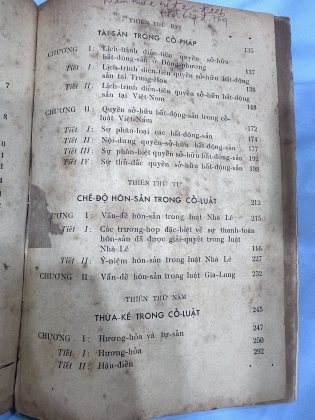 THIÊN THỨ BA
TÀI-SẢN TRONG CỔ-PHÁP 135
CHƯƠNG I: Lịch-trình diễn-tiến quyền sở-hữu
bất-động-sản ở Đông-phương 137
Tiết I: Lịch-trình diễn-tiến quyền sở-hữu bất-động-
sản tại Trung-Hoa 138
Tiết II: Lịch-trình diễn-tiến quyền sở-hữu bất-động-
sản tại Việt-Nam 148
CHƯƠNG II: Quyền sở-hữu bất-động-sản trong cổ-
luật Việt-Nam 172
Tiết I: Sự phân-loại các bất-động-sản 174
Tiết II: Nội-dung quyền-sở-hữu bất-động-sản 177
Tiết III: Sự phân-biệt quyền sở-hữu bất-động-sản 192
Tiết IV: Sự thủ-đắc quyền sở-hữu bất-động-sản 198
THIÊN THỨ TƯ
CHẾ-ĐỘ HÔN-SẢN TRONG CỔ-LUẬT 212
ƯƠNG I: Vấn-đề hôn-sản trong luật Nhà Lê 215
Tiết I: Các trường-hợp đặc-biệt về sự thanh-toán
hôn-sản đã được giải-quyết trong luật
Nhà Lê 116
Tiết II: Ý-niệm hôn-sản trong luật Nhà Lê 227
CHƯƠNG II: Vấn đề hôn-sản trong luật Gia-Long 232
THIÊN THỨ NĂM
THỪA-KẾ TRONG CỔ-LUẬT 245
CHƯƠNG I: Hương-hỏa và tự-sản 247
Tiết I: Hương-hỏa 250
Tiết II: Hậu-điền 292